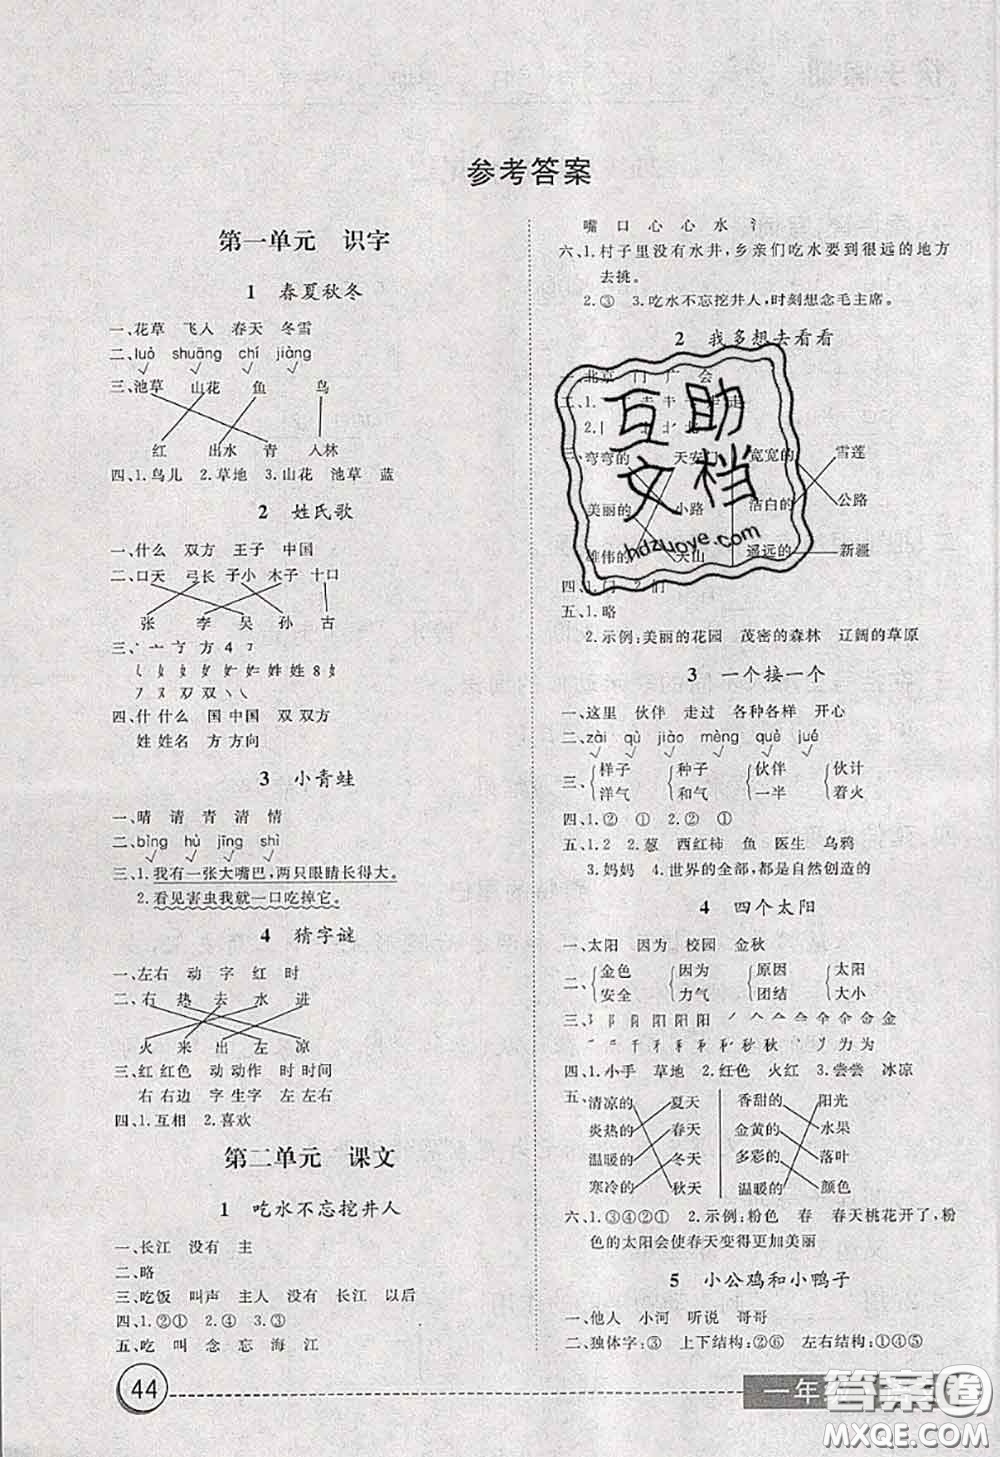 参考答案
第一单元 识字
1 春夏秋冬
一、花草 飞入 春天 冬雪
二、luò shuāng chí jiàng
三、池草 山花 鱼 鸟
红 出水 青 入林
四、1.鸟儿 2.草地 3.山花 池草 蓝
2 姓氏歌
一、什么 双方 王子 中国
二、口天 弓长 子小 木子 十口
张 李 吴 孙 古
四、什 什么 国 中国 双 双方
姓 姓名 方 方向
3 小青蛙
一、晴 请 青 清 情
二、bìng hù jīng shì
三、1.我有一张大嘴巴,两只眼睛长得大。
2.看见害虫我就一口吃掉它。
4 猜字谜
一、左右 动 字 红 时
二、右 热 去 水 进
火 来 出 左 凉
三、红 红色 动 动作 时 时间
右 右边 字 生字 左 左边
四、1.互相 2.喜欢
第二单元 课文
1 吃水不忘挖井人
一、长江 没有 主
二、略
三、吃饭 叫声 主人 没有 长江 以后
四、1.②① 2.④③ 3.③
五、吃 叫 念 忘 海 江
嘴 口 心 心 水 氵
六、1.村子里没有水井,乡亲们吃水要到很远的地方
去挑。
2.③ 3.吃水不忘挖井人,时刻想念毛主席。
2 我多想去看看
一、北京 门 广 会
三、弯弯的 天安门 宽宽的 雪莲
美丽的 小路 洁白的 公路
雄伟的 天山 遥远的 新疆
四、1.门 2.们
五、1.略
2.示例:美丽的花园 茂密的森林 辽阔的草原
3 一个接一个
一、这里 伙伴 走过 各种各样 开心
二、zài qù jiào mèng què jué
三、样子 种子 伙伴 伙计
洋气 和气 一半 着火
四、1.② ① 2.② ①
五、1.2 2.葱 西红柿 鱼 医生 乌鸦
3.妈妈 4.世界的全部,都是自然创造的
4 四个太阳
一、太阳 因为 校园 金秋
二、金色 因为 原因 太阳
安全 力气 团结 大小
四、1.小手 草地 2.红色 火红 3.尝尝 冰凉
五、清凉的 夏天 香甜的 阳光
炎热的 春天 金黄的 水果
温暖的 冬天 多彩的 落叶
寒冷的 秋天 温暖的 颜色
六、1.③④②① 2.示例:粉色 春 春天桃花开了,粉
色的太阳会使春天变得更加美丽
5 小公鸡和小鸭子
一、他人 小河 听说 哥哥
二、独体字:③ 上下结构:②⑥ 左右结构:①④⑤
44
一年级
互助
文档
hdzuoye.com
答案圈
MXQE.COM